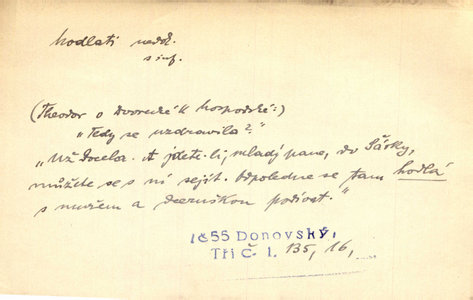 hodlati nedok.
s inf.
(Theodor o Dvorecké k hospodské:)
"Tedy se uzdravila?"
"Už docela. A jdete-li, mladý pane, do Šárky,
můžete se s ní sejít. Odpoledne se tam hodlá
s mužem a dceruškou podívat."
1855 Donovský,
Tři č. 1. 135, 16,